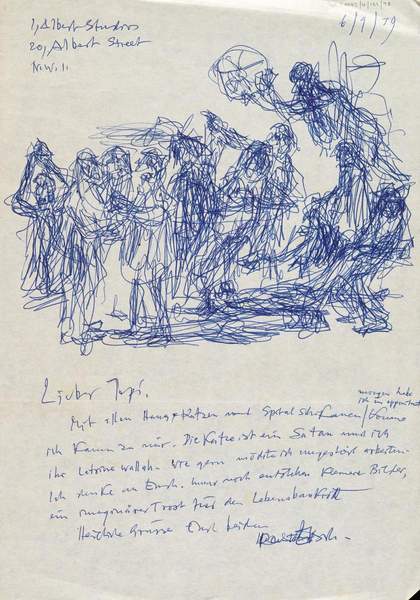 1, Albert Studios
20, Albert Street
N.W.11.
6/9/79
Lieber
morgen habe
ich
Mit allen Haus + Katzen und Spital
ich kaum zu mir. Die Katze ist ein Satan und ich
ihr Latrine wallah. Wie gern möchte ich ungestört arbeiten.
Ich denke an Euch. Immer noch entstehen Bilder,
ein imaginärer Trost für den Lebensbankrott
Herzliche Grüsse Euch beiden